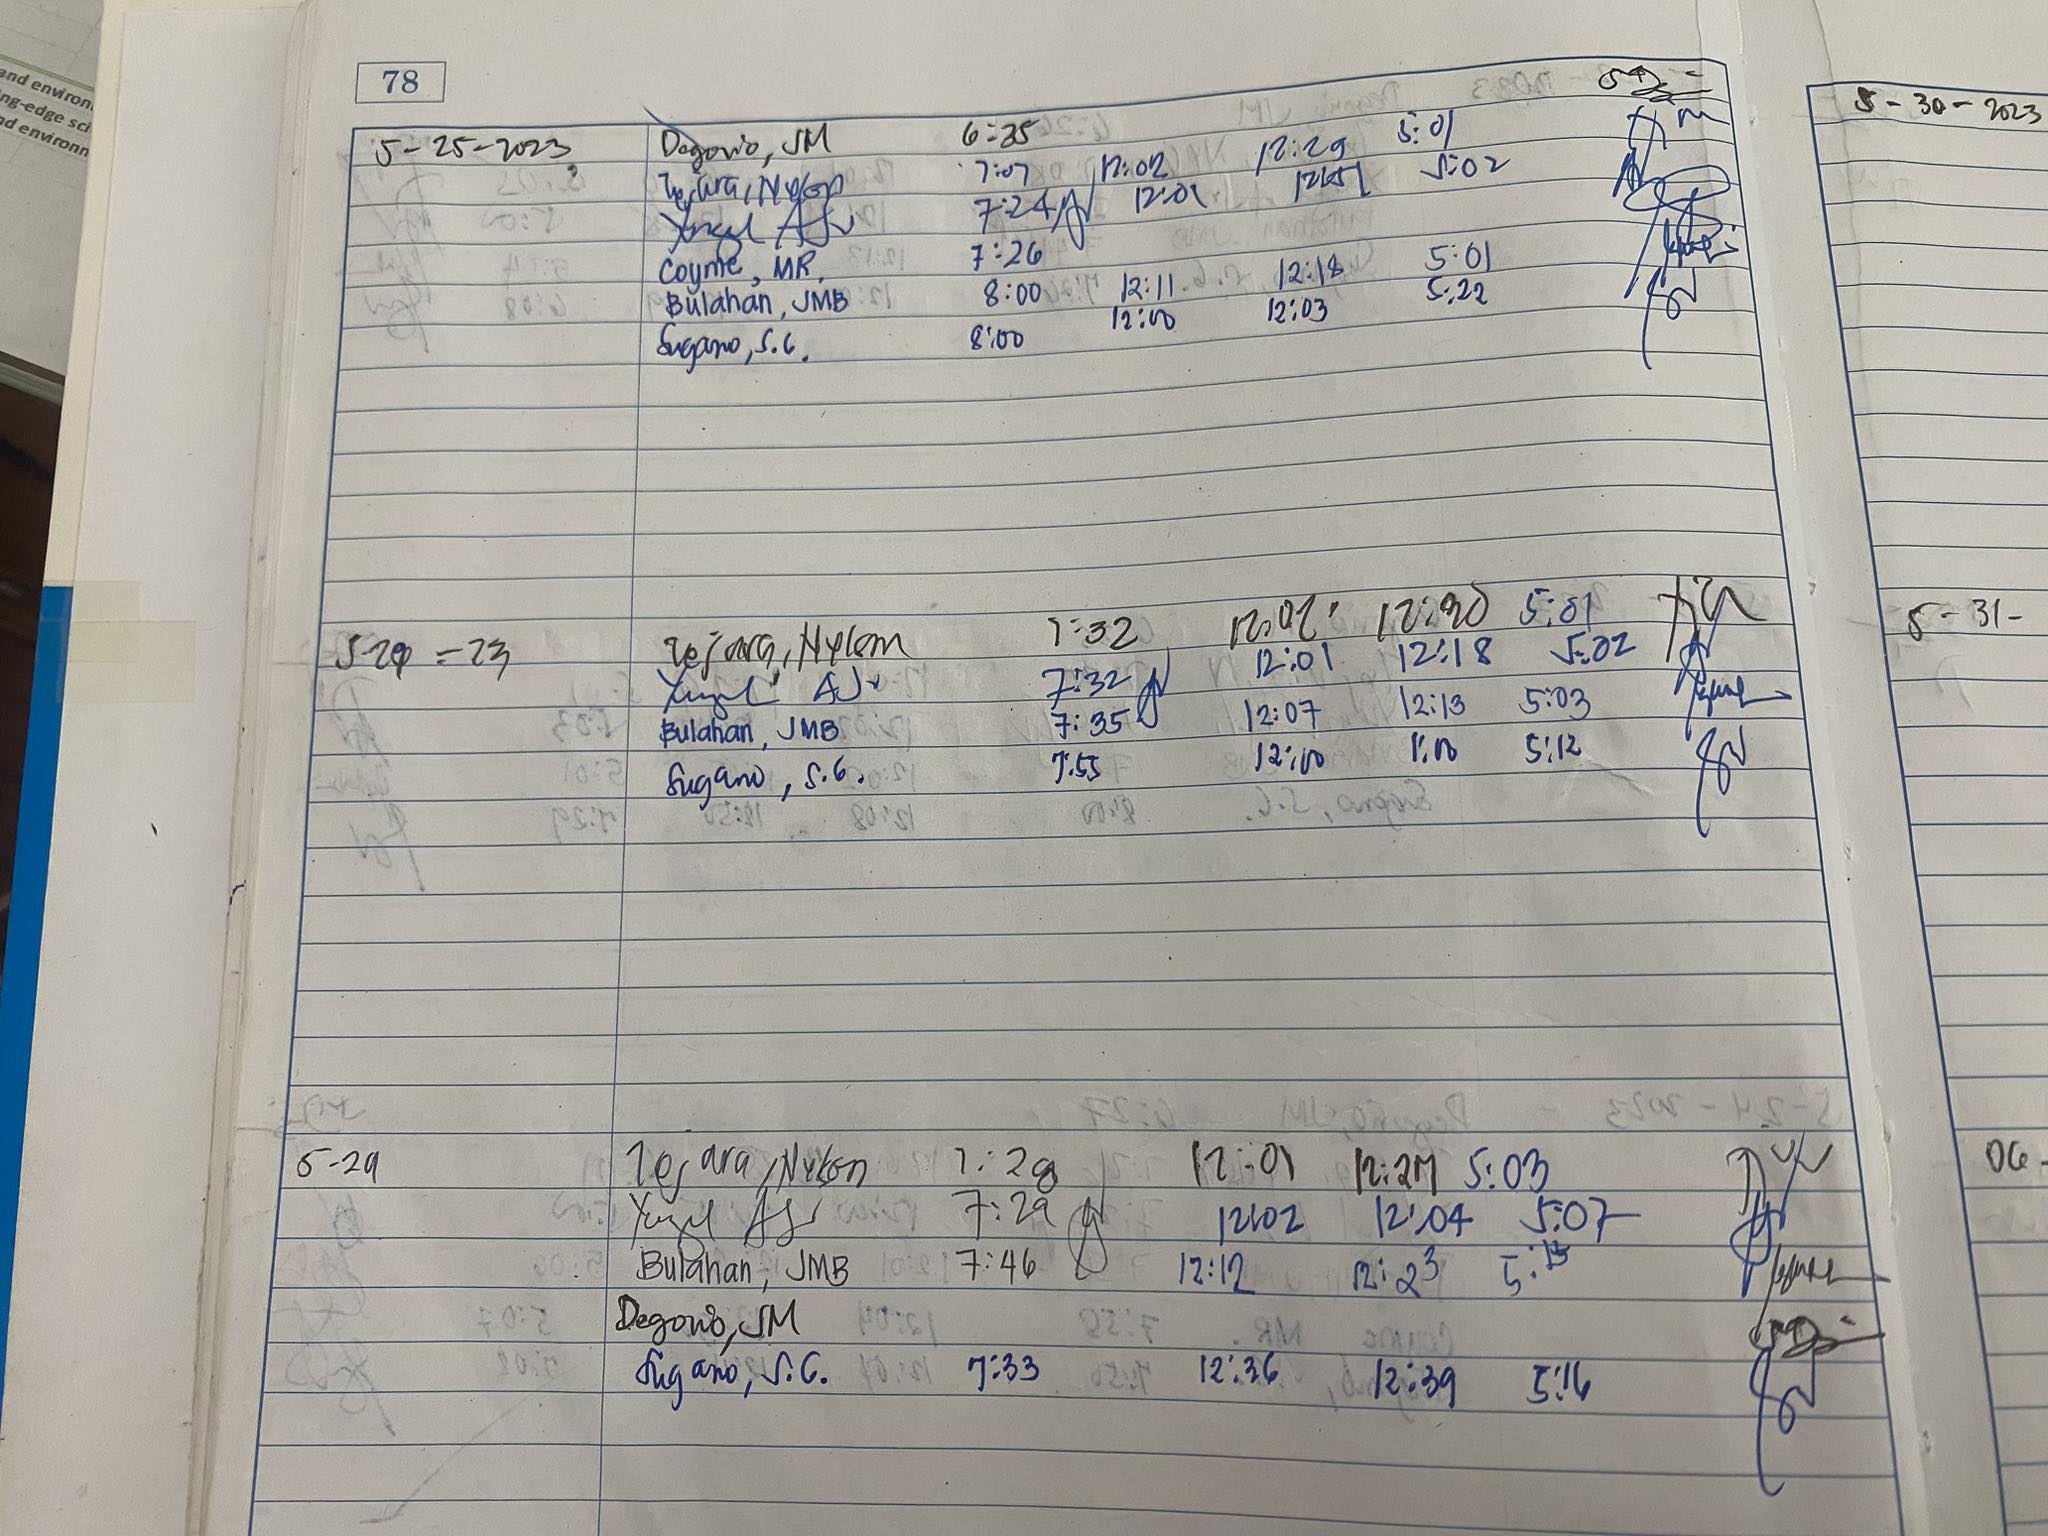 and environ
ng-edge sci
nd environn
78
5-25-2023 Degorio, JM 6:35
Tejara, Nylon 7:07 12:02 12:29 5:01
AJ 7:24 12:01 12:51 5:02
Coyme, MR. 7:26
Bulahan, JMB 8:00 12:11 12:18 5:01
Sugano, S.G. 8:00 12:00 12:03 5:22
-23 Tejara, Nylon 7:32 12:02 12:30 5:01
AJ 7:32 12:01 12:18 5:02
Bulahan, JMB 7:35 12:07 12:13 5:03
Sugano, S.G. 7:55 12:00 1:00 5:12
5-29 Tejara, Nylon 7:28 12:01 12:27 5:03
AJ 7:29 12:02 12:04 5:07
Bulahan, JMB 7:46 12:12 12:23 5:13
Degorio, JM
Sugano, S.G. 7:33 12:36 12:39 5:16
5-30-2023
5-31-
06-